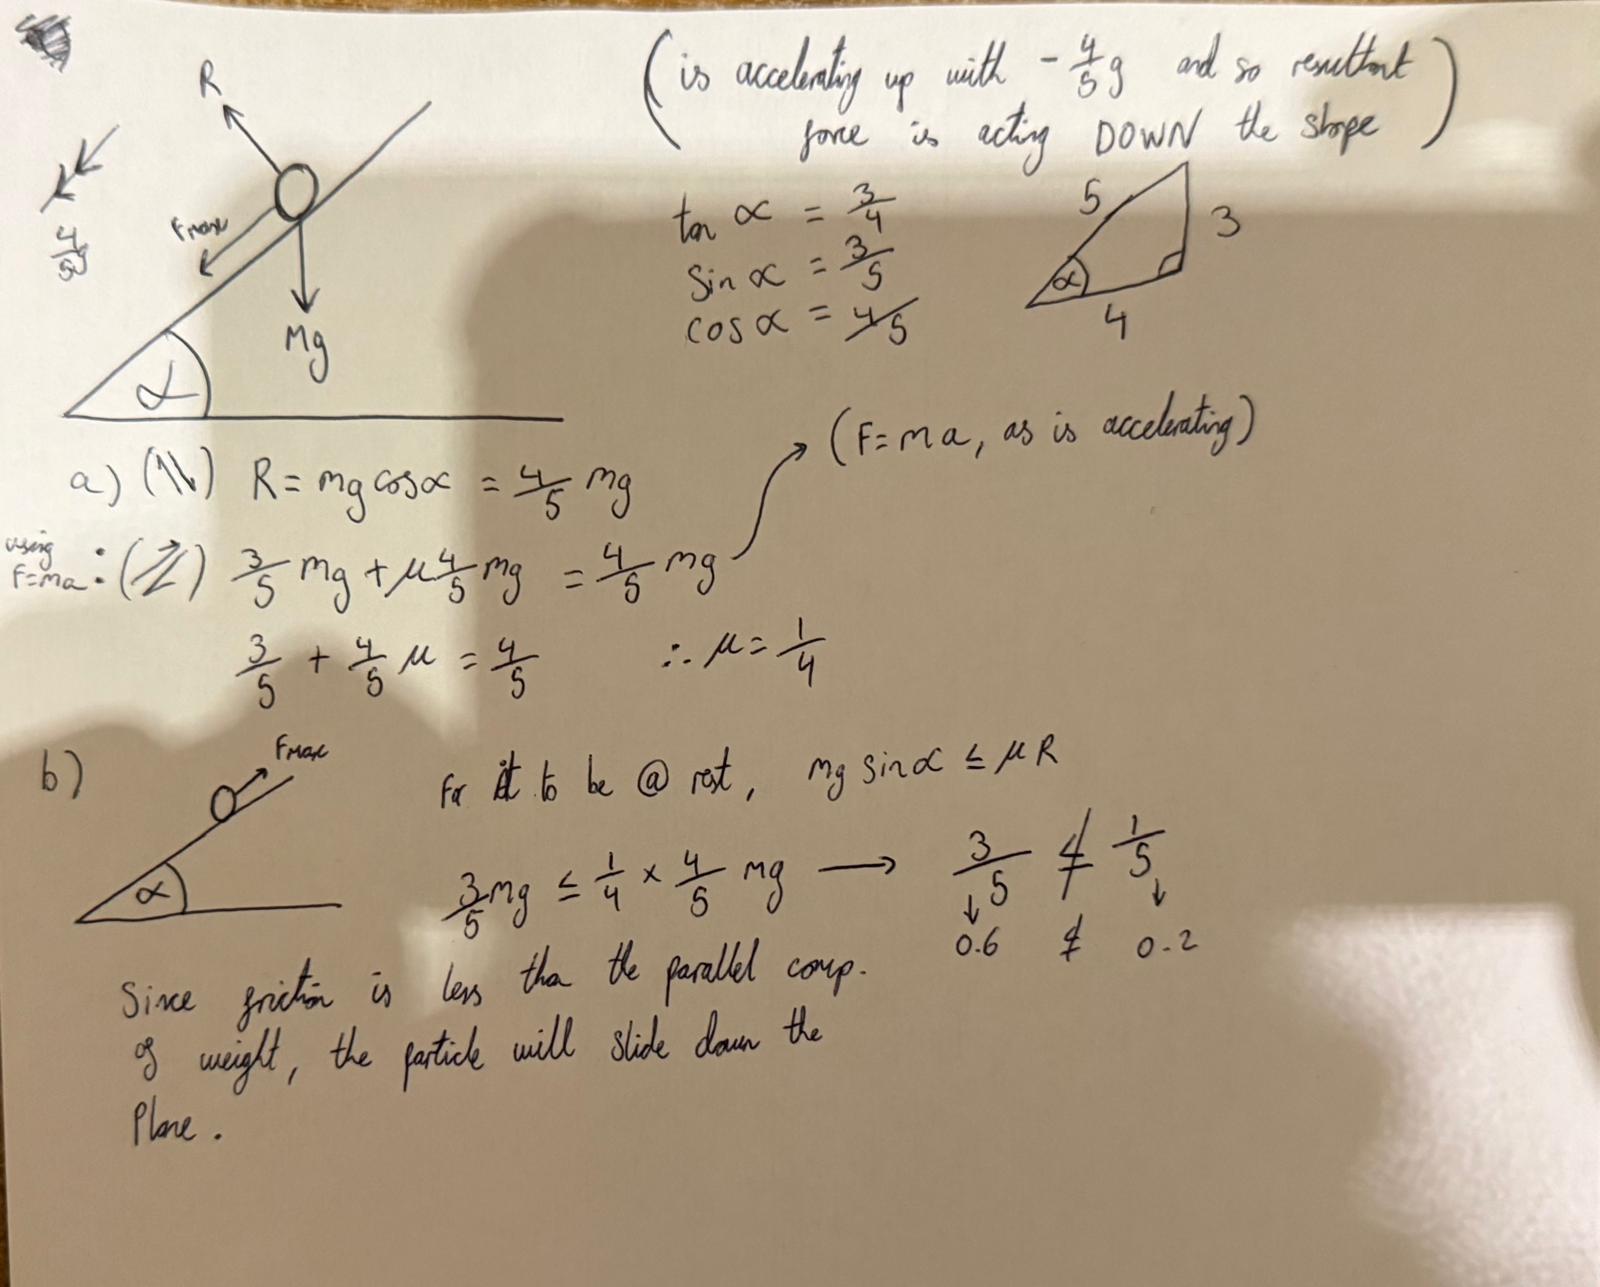 R
(is accelerating up with - 4/5 g and so resultant
force is acting DOWN the slope)
Fmax
4/5 g
Mg
α
tan α = 3/4
sin α = 3/5
cos α = 4/5
5
3
α
4
a) (↖↘) R = mg cosα = 4/5 mg
(F=ma, as is accelerating)
using F=ma : (↗↙) 3/5 mg + μ 4/5 mg = 4/5 mg
3/5 + 4/5 μ = 4/5 ∴ μ = 1/4
b)
Fmax
α
For it to be @ rest, mg sinα ≤ μR
3/5 mg ≤ 1/4 × 4/5 mg → 3/5 ≰ 1/5
↓ ↓
0.6 ≰ 0.2
Since friction is less than the parallel comp.
of weight, the particle will slide down the
Plane.